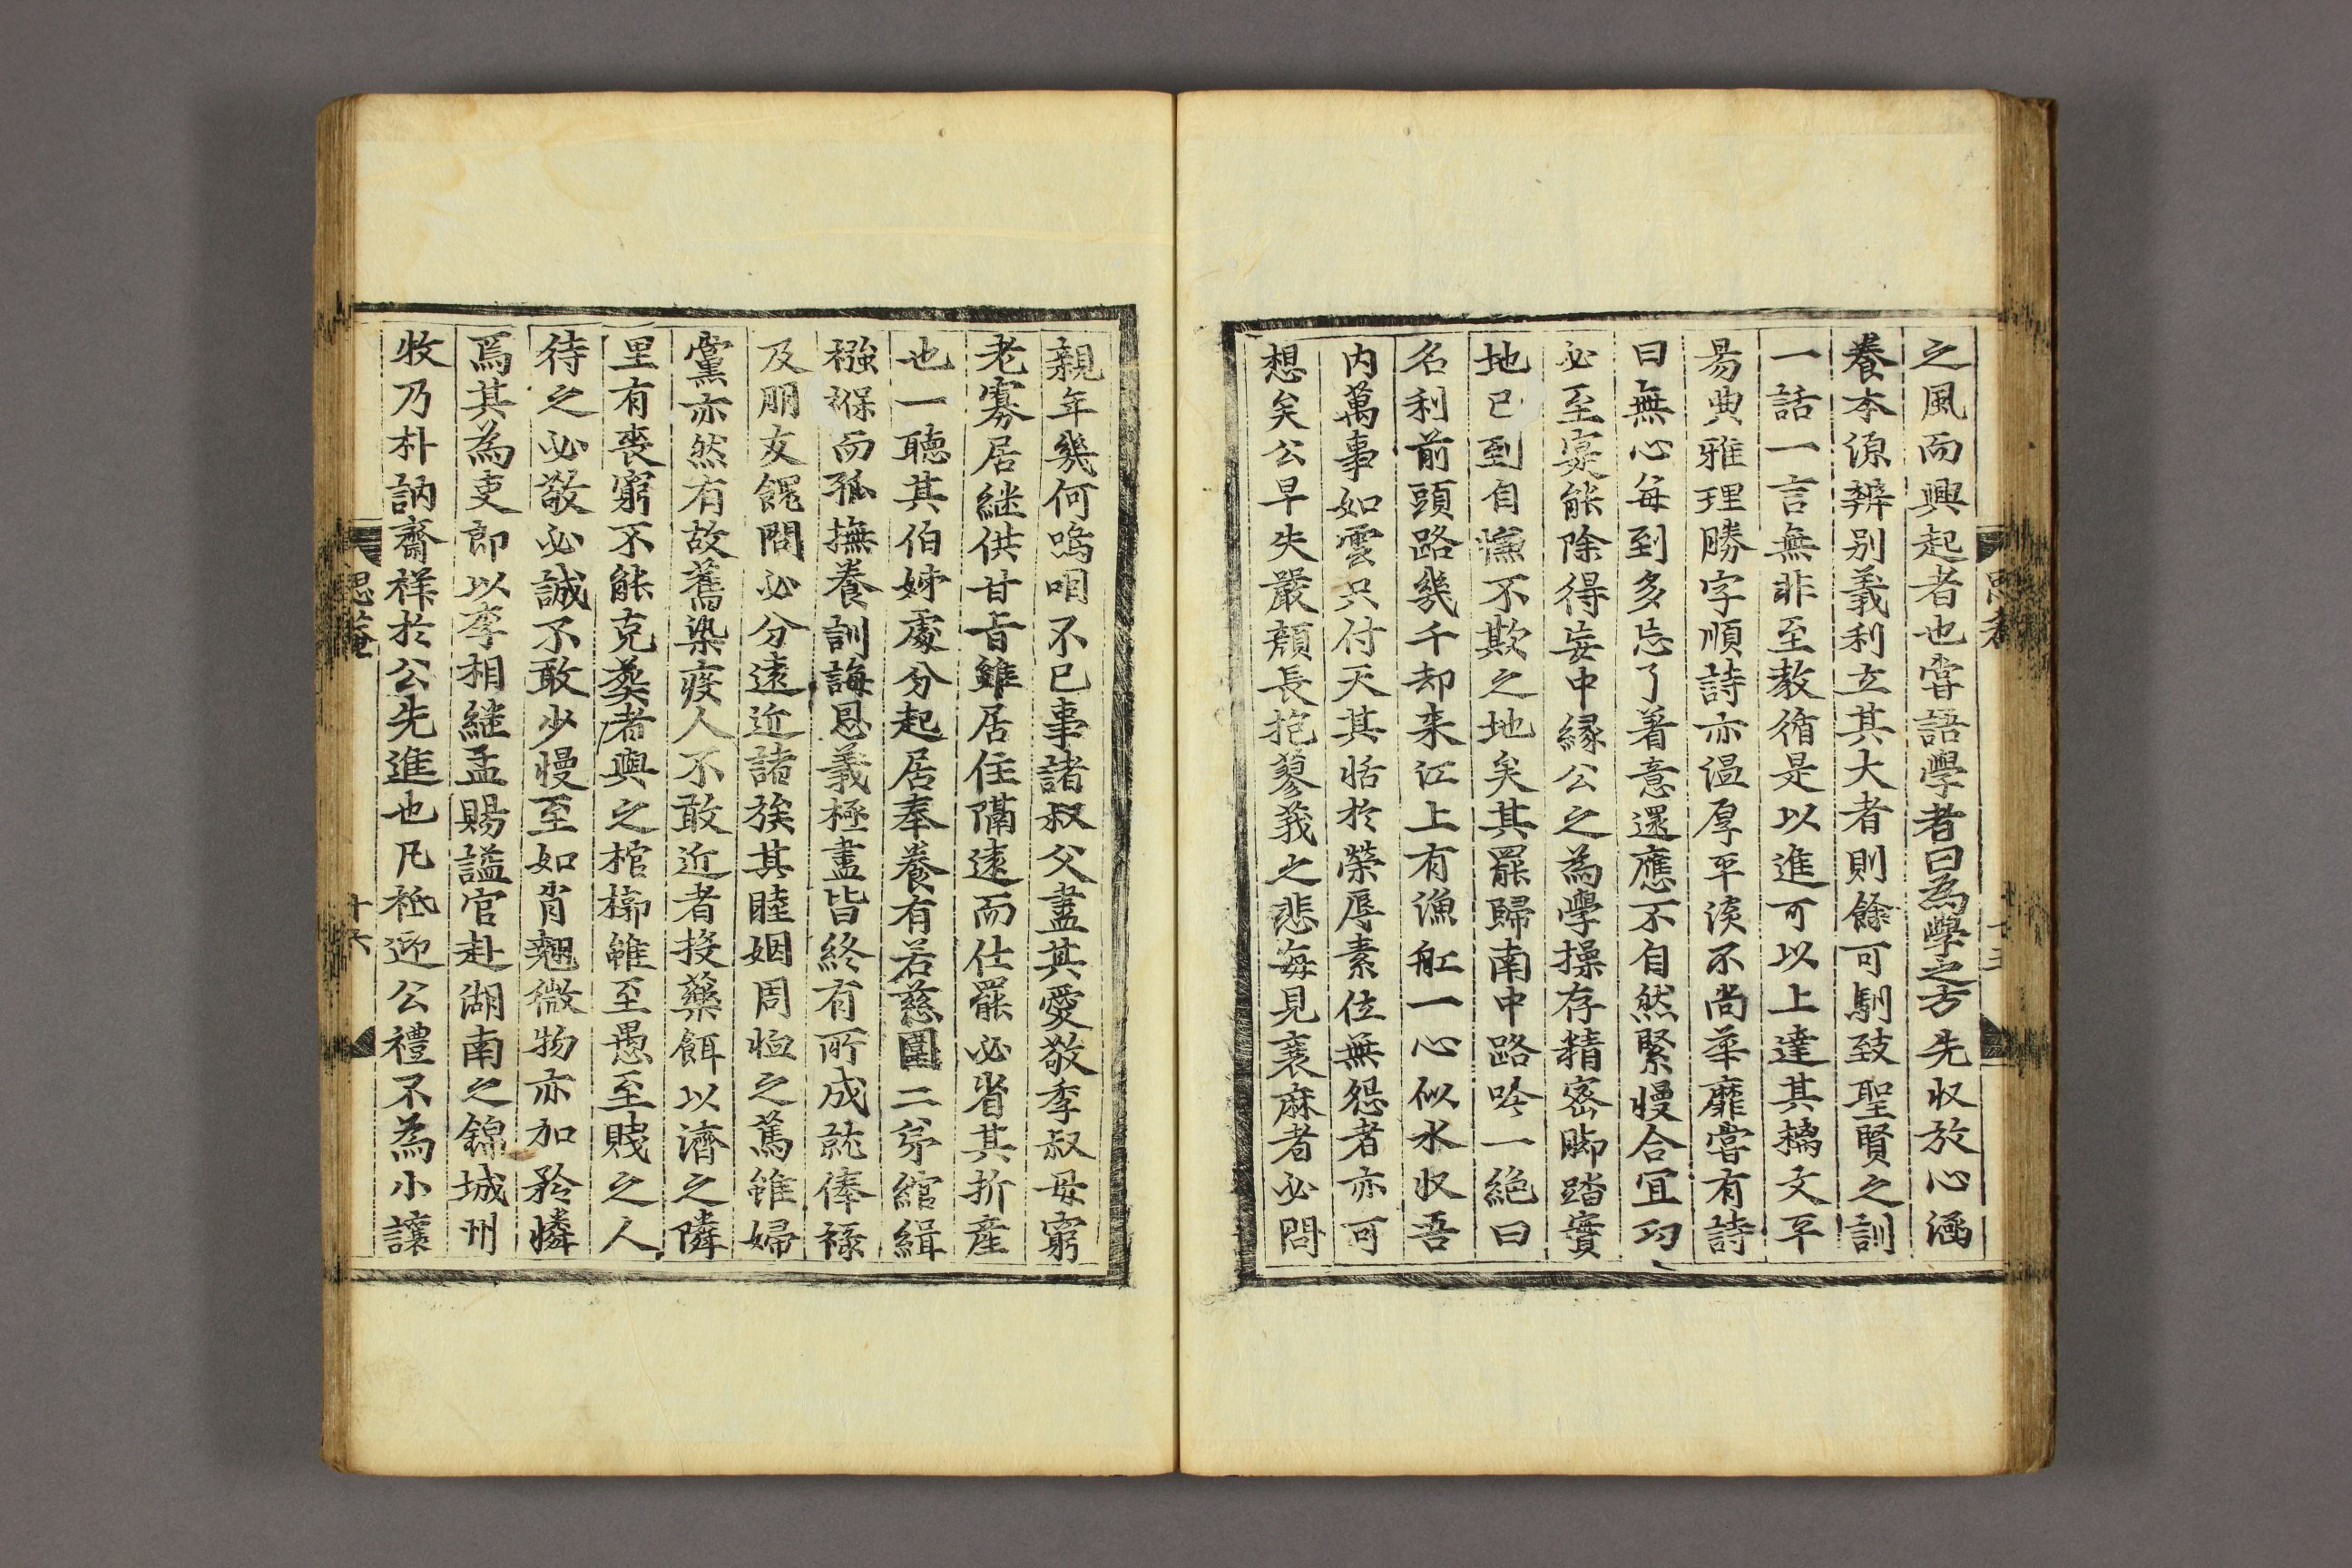 之風而興起者也嘗語學者曰為學之方先收放心涵
養本源辨別義利立其大者則餘可馴致聖賢之訓
一話一言無非至教循是以進可以上達其摛文平
易典雅理勝字順詩亦溫厚平淡不尚華靡嘗有詩
曰無心每到多忘了着意還應不自然緊慢合宜功
必至寔能除得妄中緣公之為學操存精密脚踏實
地已到自慊不欺之地矣其罷歸南中路吟一絕曰
名利前頭路幾千却来江上有漁舡一心似水收吾
內萬事如雲只付天其恬於榮辱素位無怨者亦可
想矣公早失嚴顏長抱蓼莪之悲每見衰麻者必問
親年幾何嗚咽不已事諸叔父盡其愛敬季叔母窮
老寡居継供甘旨雖居住隔遠而仕罷必省其折產
也一聽其伯姊處分起居奉養有若慈闈二弟綰緝
襁褓而孤撫養訓誨恩義極盡皆終有所成就俸祿
及朋友餽問必分遠近諸族其睦姻周恤之篤雖婦
黨亦然有故舊染疫人不敢近者投藥餌以濟之隣
里有喪窮不能克葬者與之棺槨雖至愚至賤之人
待之必敬必誠不敢少慢至如肖翹微物亦加矜憐
焉其為吏郎以李相継孟賜謚官赴湖南之錦城州
牧乃朴訥齋祥於公先進也凡祗迎公禮不為小讓
思菴
十六